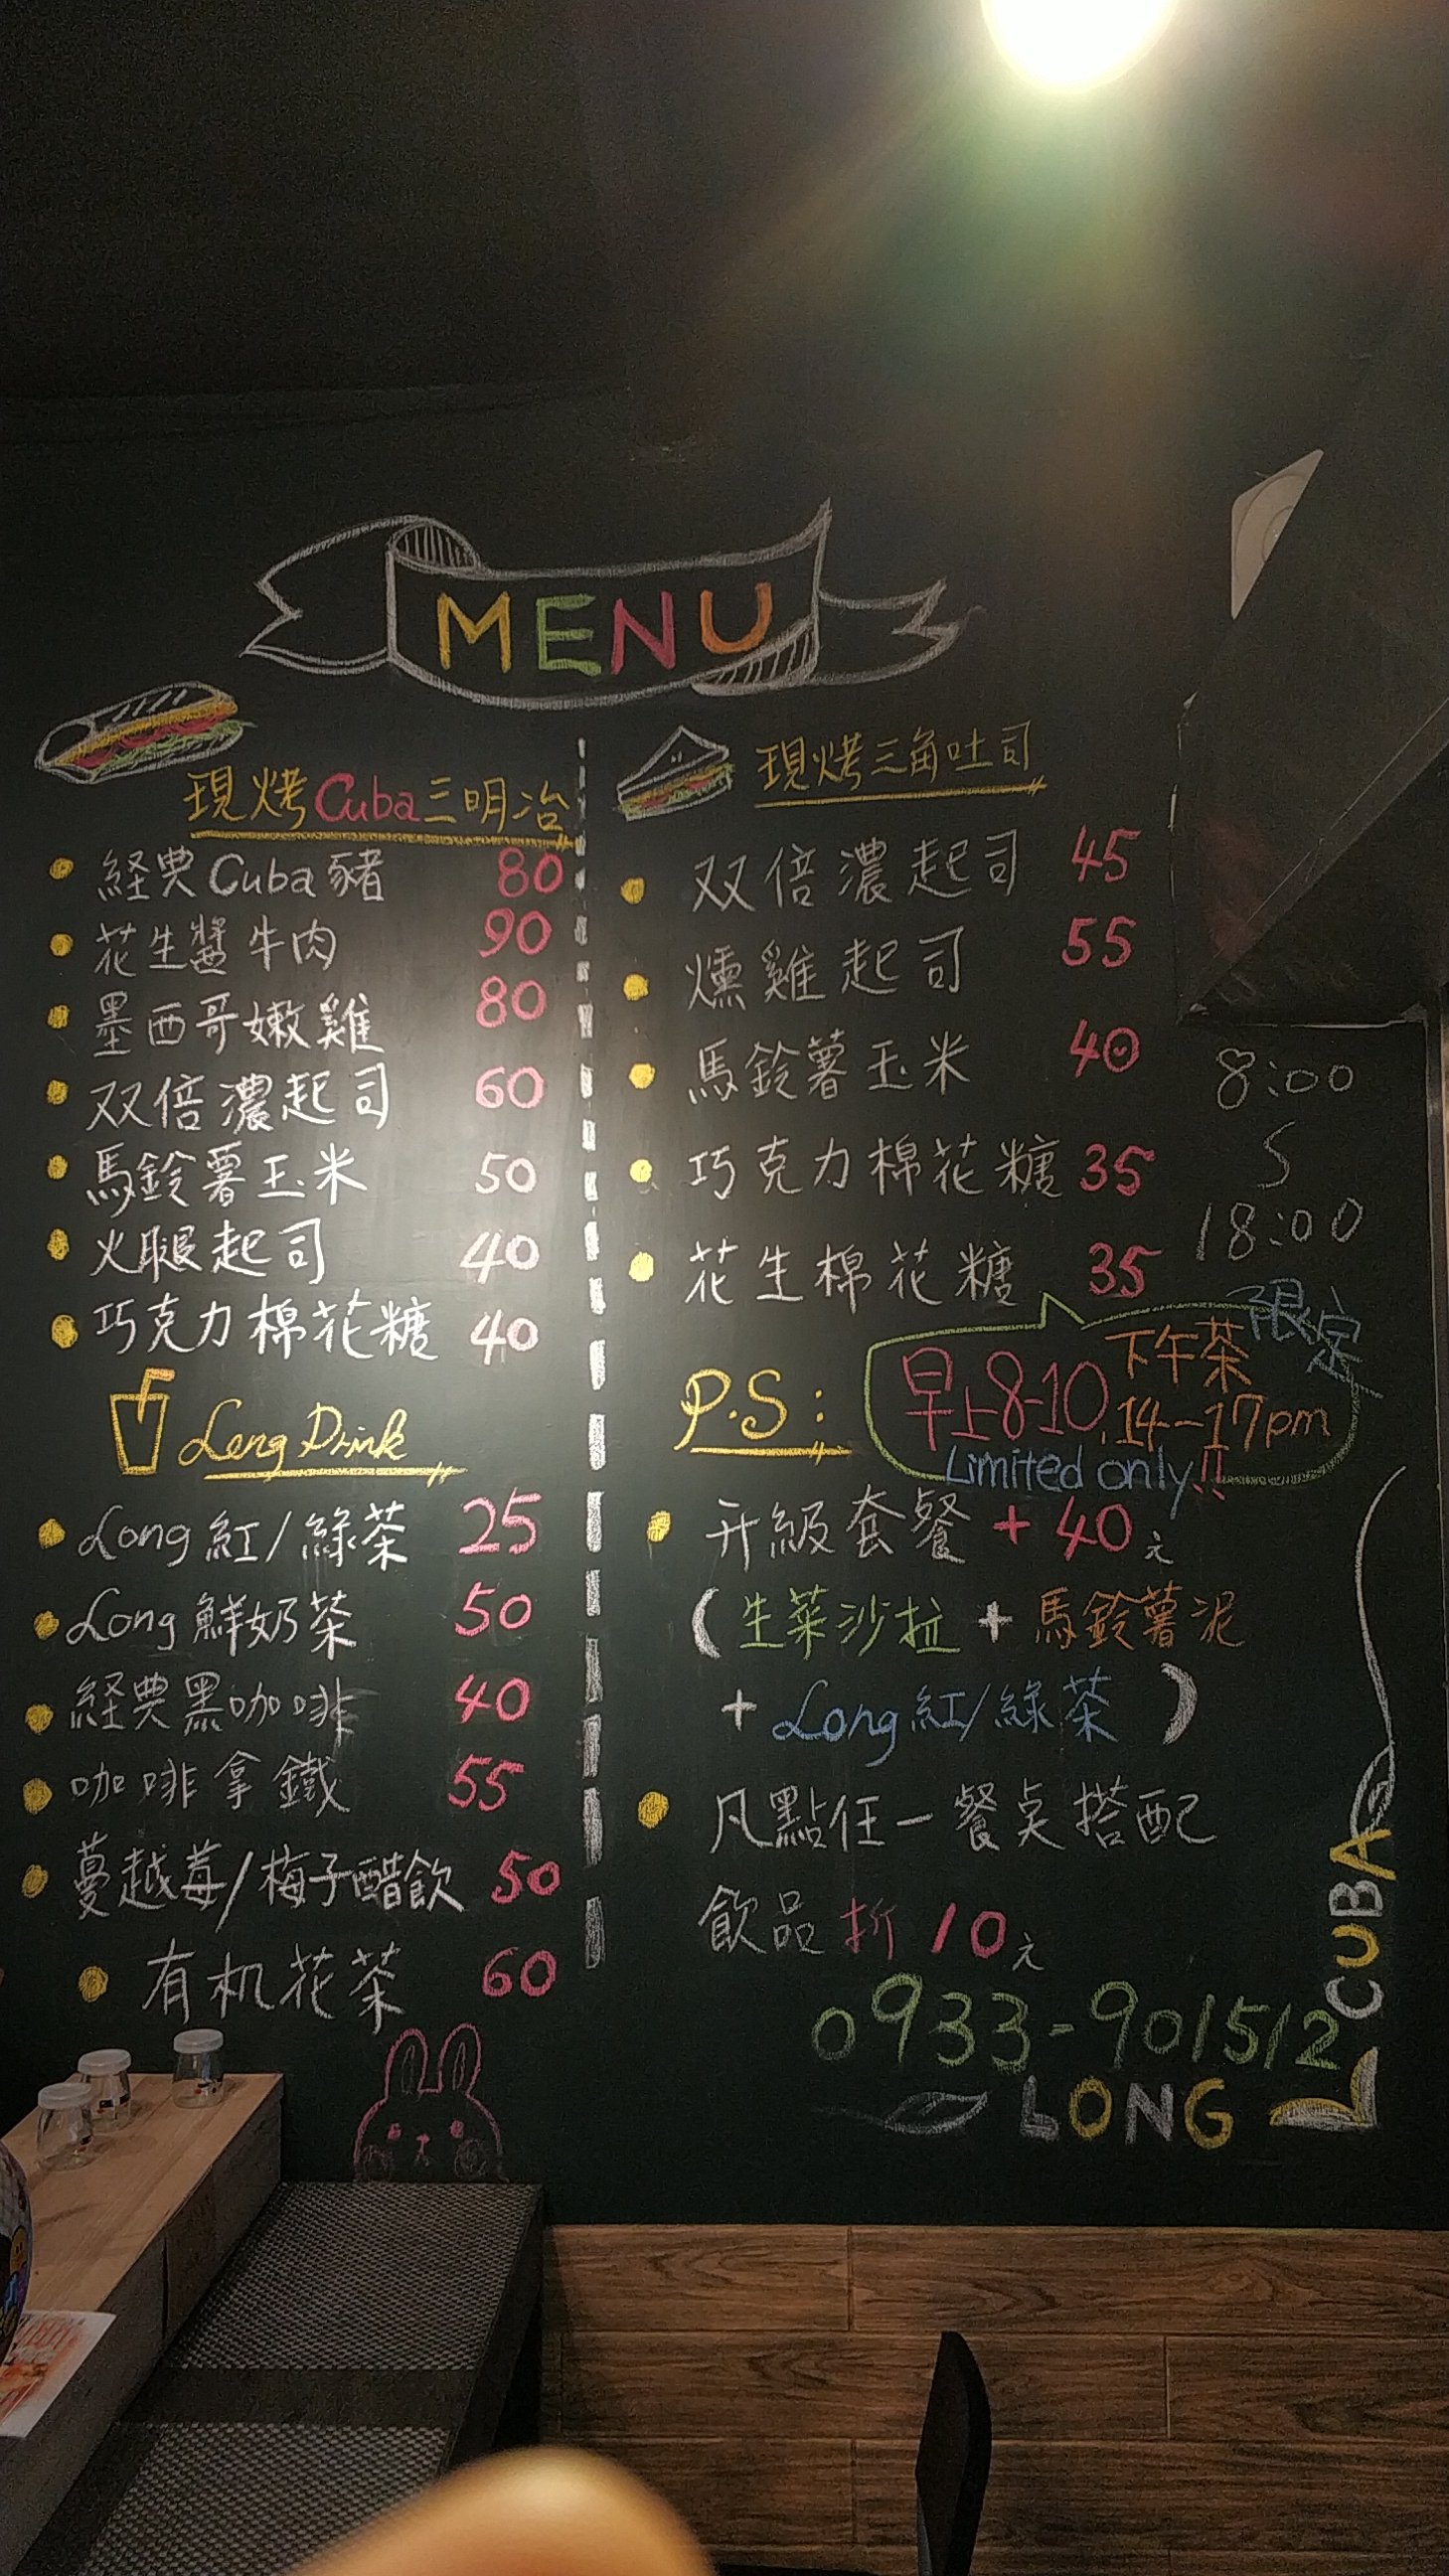 MENU
現烤Cuba三明冶
経典Cuba豬 80
花生醬牛肉 90
墨西哥嫩雞 80
双倍濃起司 60
馬鈴薯玉米 50
火腿起司 40
巧克力棉花糖 40
Long Drink
Long 紅/綠茶 25
Long 鮮奶茶 50
経典黑咖啡 40
咖啡拿鐵 55
蔓越莓/梅子醋飲 50
有机花茶 60
現烤三角吐司
双倍濃起司 45
燻雞起司 55
馬鈴薯玉米 40
巧克力棉花糖 35
花生棉花糖 35
8:00
18:00
限定
P.S:
早上8-10
下午茶
14--17pm
Limited only!!
升級套餐 + 40元
(生菜沙拉 + 馬鈴薯泥
+ Long紅/綠茶)
凡點任一餐桌搭配
飲品折10元
0933-901512
LONG
CUBA